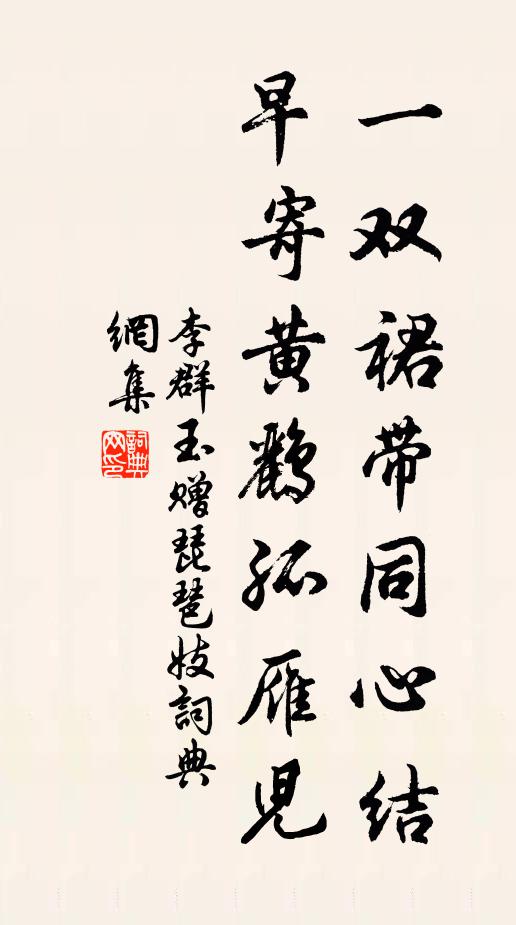 一双裙带同心结
早寄黄鹂孤雁児
李群玉赠琵琶妓詞典
網集
詞典
网印